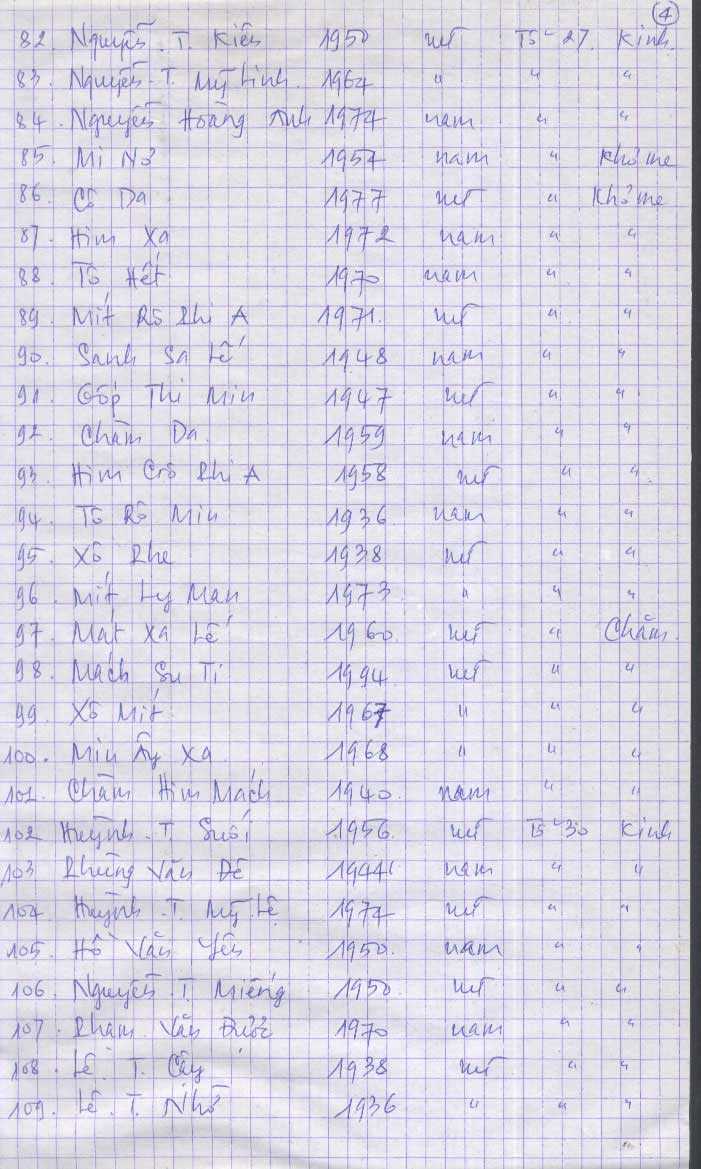 4
82. Nguyễn. T. Kiều 1950 nữ Tổ 27 Kinh
83. Nguyễn. T. Mỹ Linh. 1964 " " "
84. Nguyễn Hoàng Anh 1974 nam " "
85. Mi Nơ 1957 nam " Khơme
86. Cô Da 1977 nữ " Khơme
87. Him Xa 1972 nam " "
88. Tô Hết 1970 nam " "
89. Mít Rô Phi A 1971. nữ " "
90. Sanh Sa Lế 1948 nam " "
91. Gốp Thi Min 1947 nữ " "
92. Chăm Da 1959 nam " "
93. Him Crô Phi A 1958 nữ " "
94. Tô Rô Min 1936 nam " "
95. Xô Rhe 1938 nữ " "
96. Mít Ly Man 1973 " " "
97. Mát Xa Lế 1960. nữ " Chăm.
98. Mách Su Ti 1994 nữ " "
99. Xô Mít 1967 " " "
100. Min Ây Xa 1968 " " "
101. Chăm Him Mách 1940. nam " "
102 Huỳnh. T. Suối 1956. nữ Tổ 30 Kinh
103 Phùng Văn Đê 1944 nam " "
104. Huỳnh. T. Mỹ Lệ 1974 nữ " "
105. Hồ Văn Yên 1950. nam " "
106. Nguyễn. T. Miếng 1950. nữ " "
107. Phạm Văn Được 1970 nam " "
108. Lê. T. Cây 1938 nữ " "
109. Lê. T. Nhỏ 1936 " " "